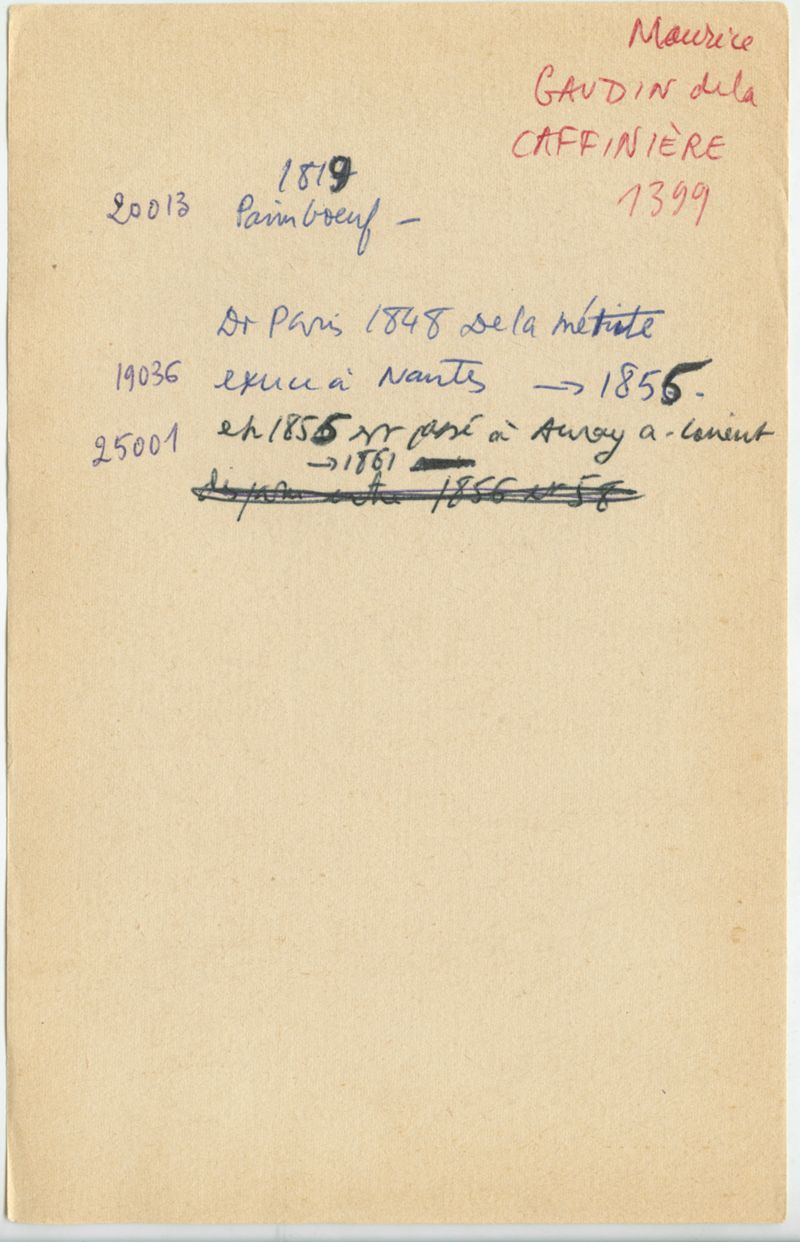 Maurice
GAUDIN de la
CAFFINIÈRE
1399
1819
20013 Paimboeuf –
Dr Paris 1848 De la métrite
19036 exerce à Nantes → 1855.
25001 en 1855 est passé à Auray a - Lorient
→ 1861
disparu entre 1856 et 58